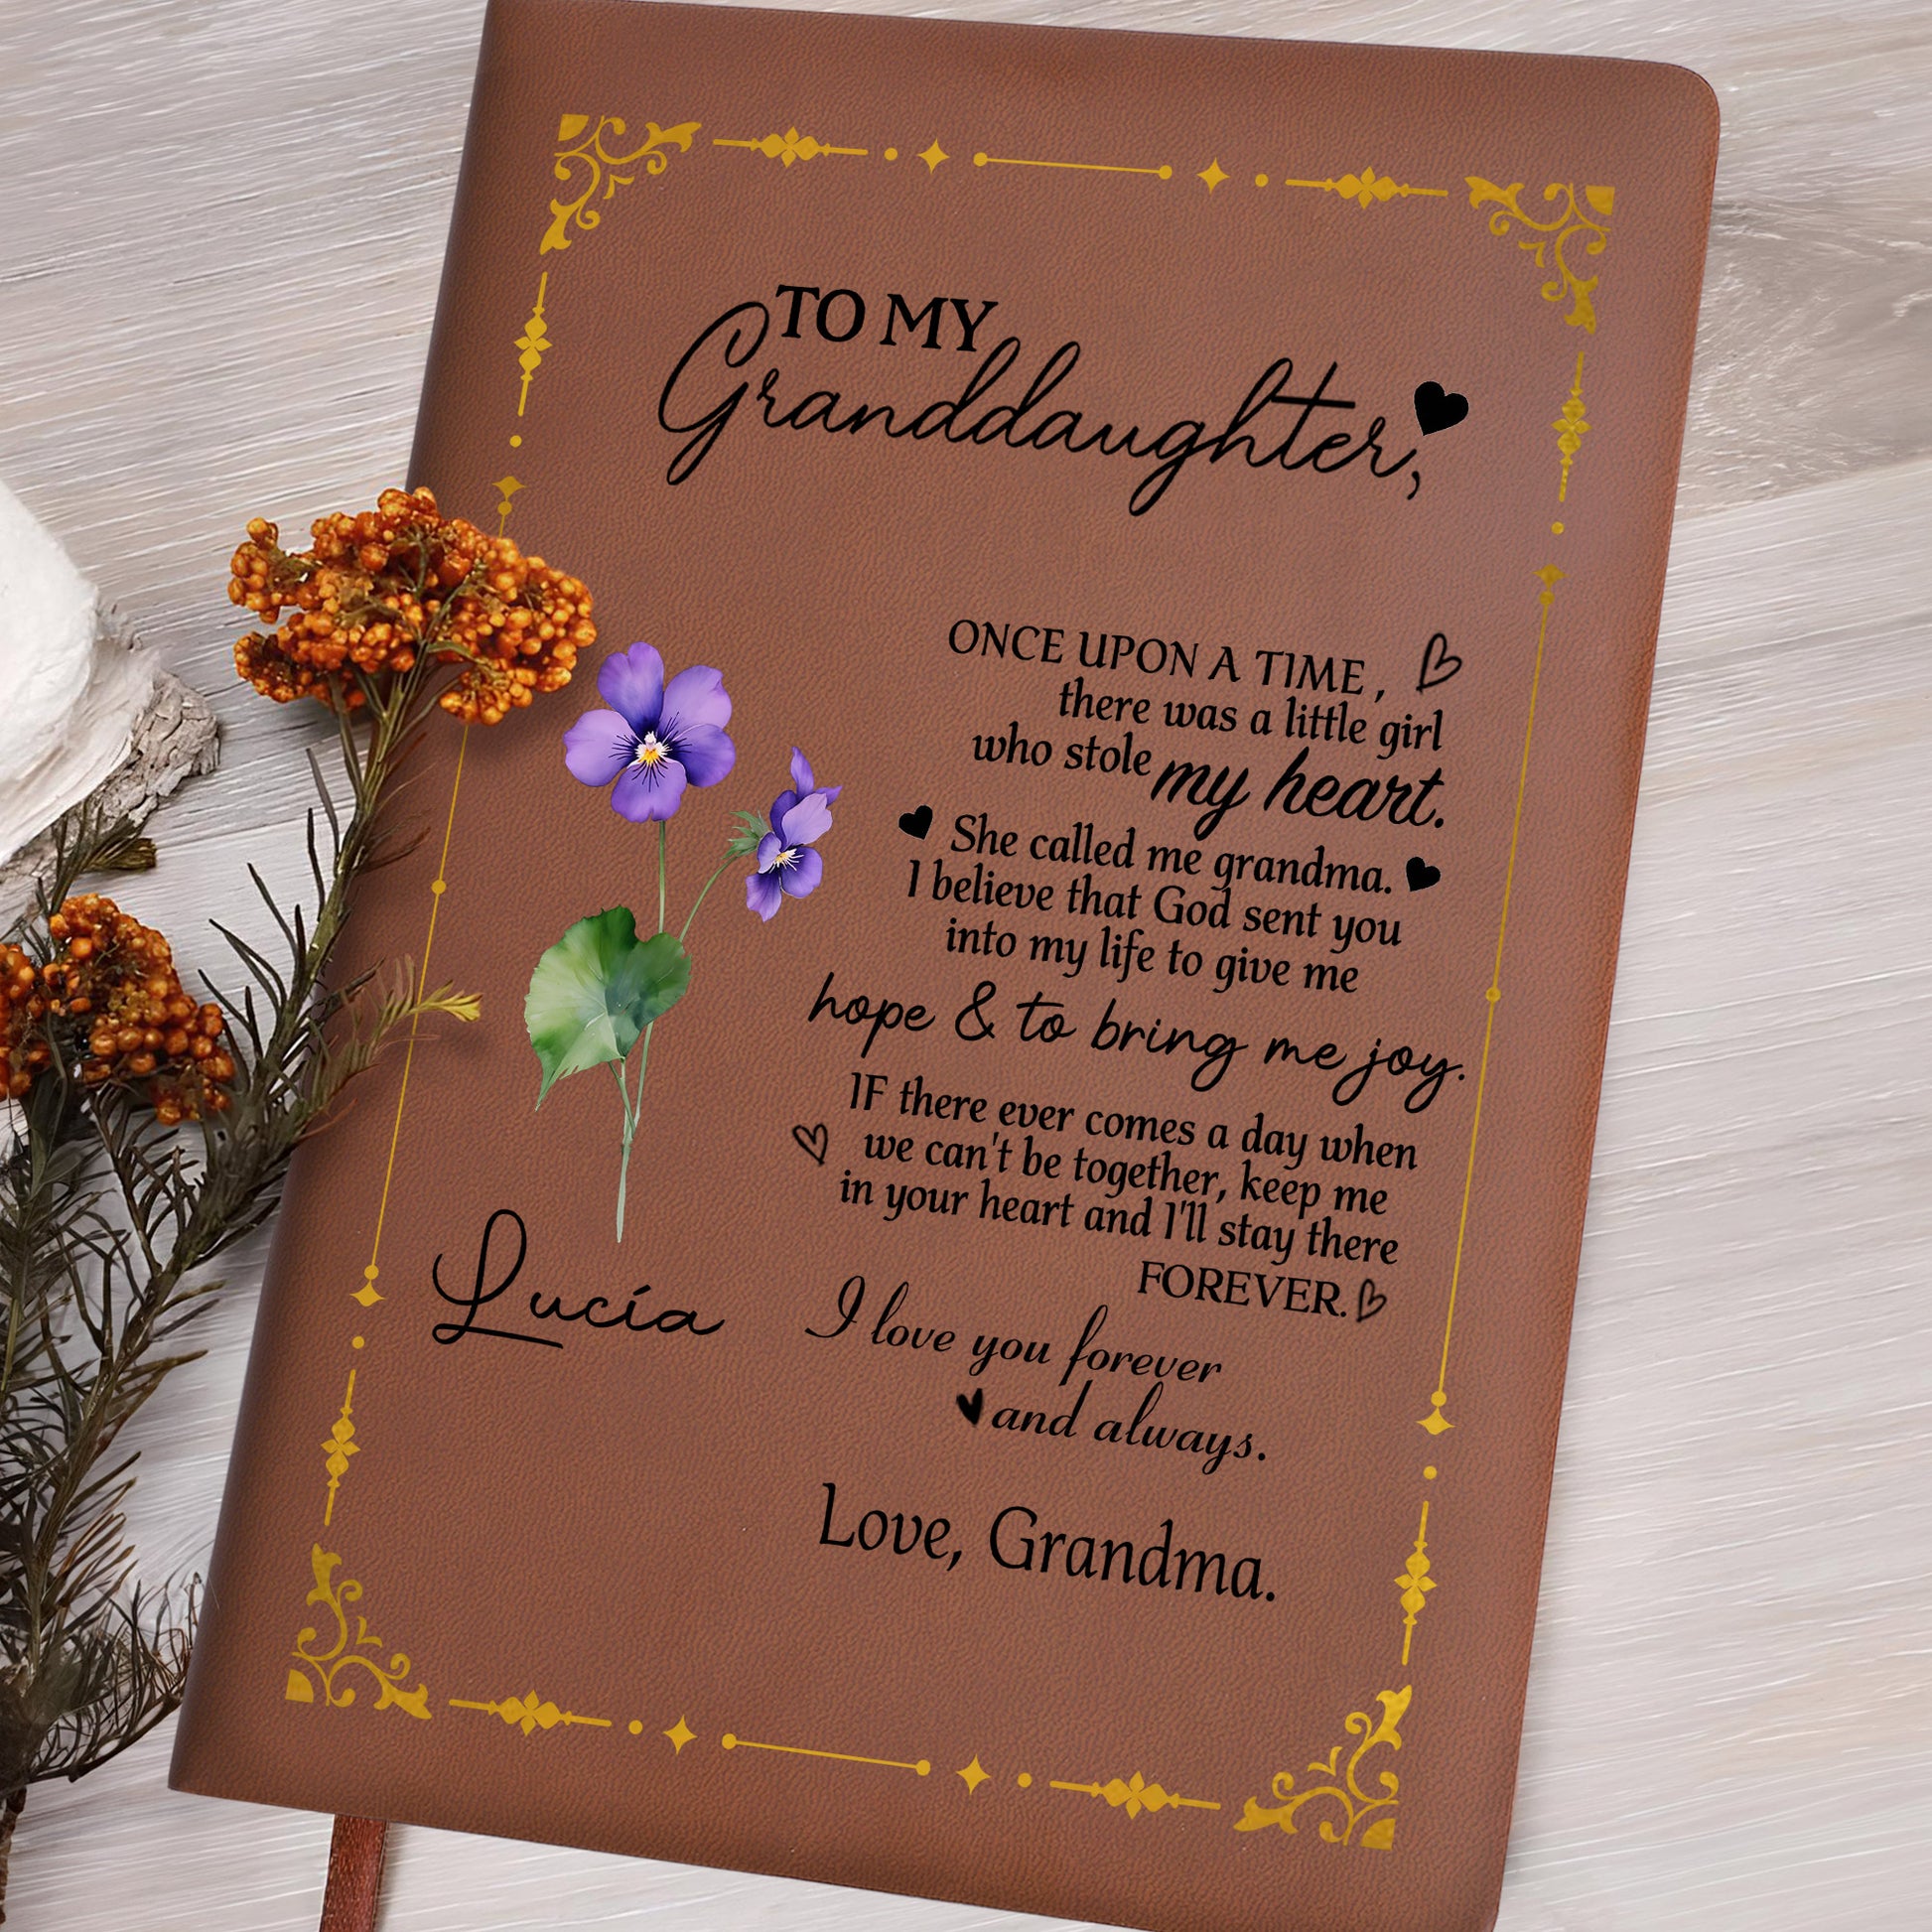 TO MY
Granddaughter,
ONCE UPON A TIME ,
there was a little girl
who stole my heart.
She called me grandma.
I believe that God sent you
into my life to give me
hope & to bring me joy.
IF there ever comes a day when
we can't be together, keep me
in your heart and I'll stay there
FOREVER.
Lucía
I love you forever
and always.
Love, Grandma.